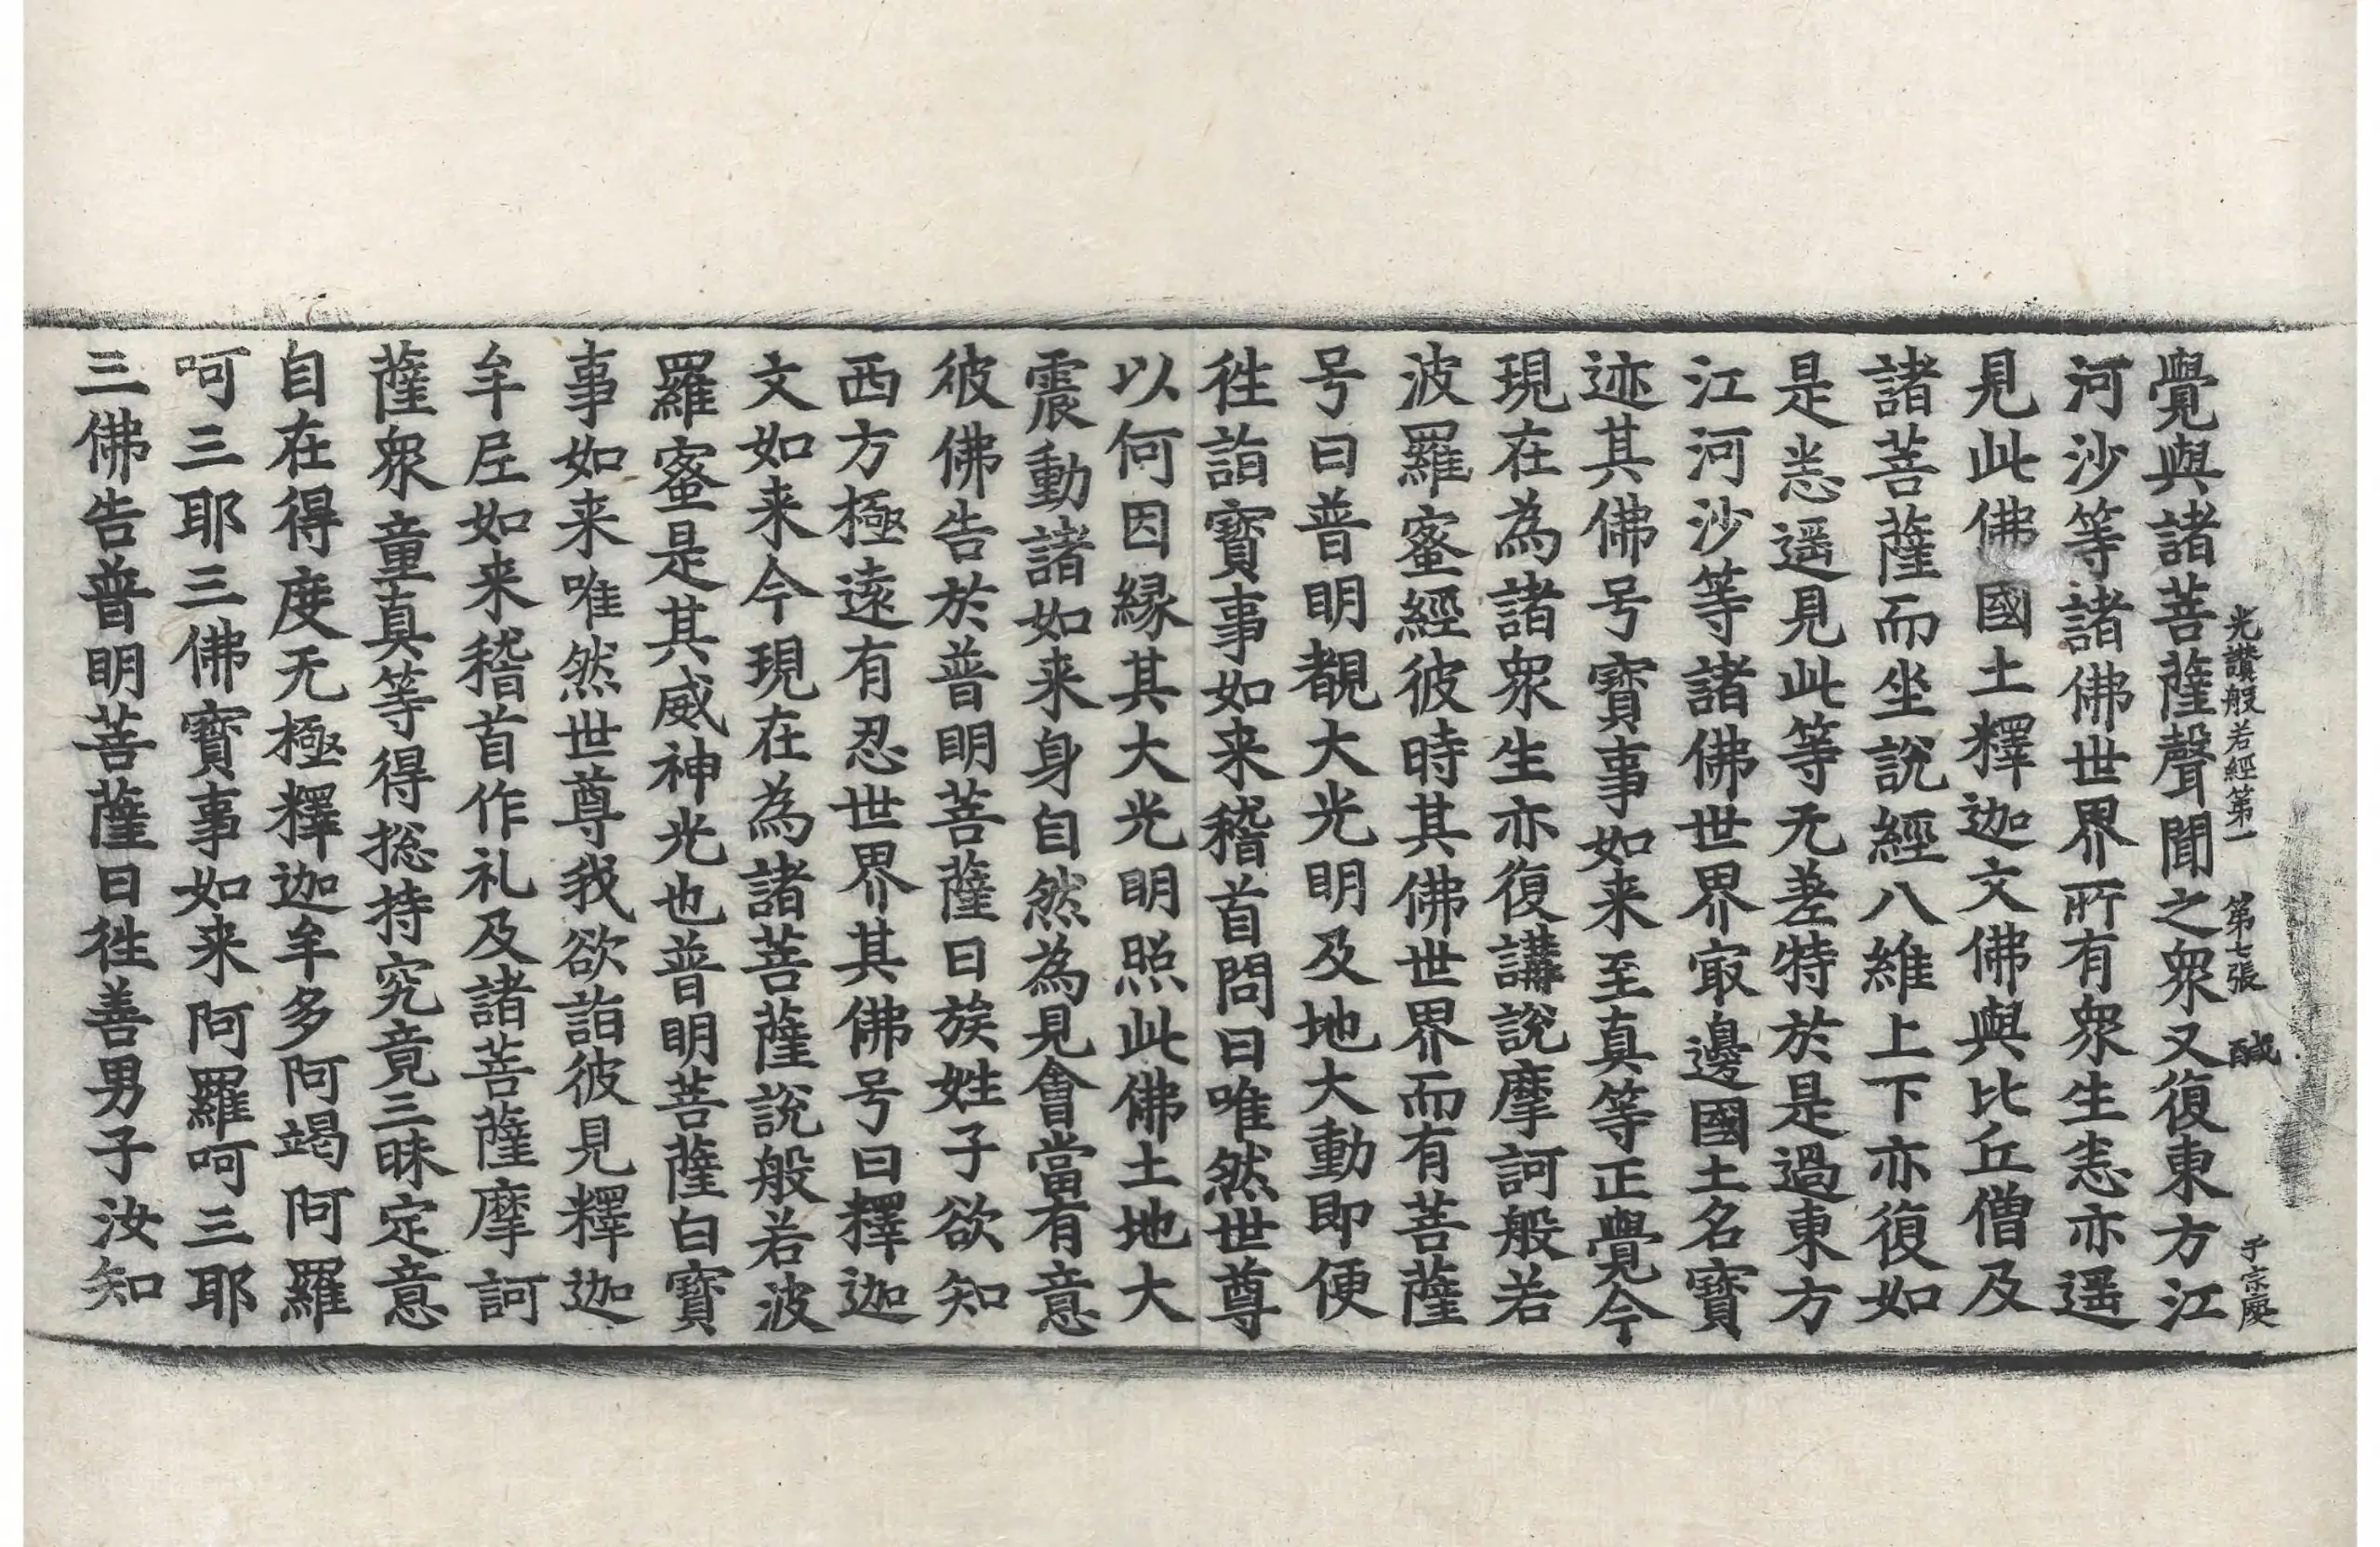 光讚般若經第一　第七張　醎　子宗慶
覺與諸菩薩聲聞之衆又復東方江
河沙等諸佛世界所有衆生恚亦遥
見此佛國土釋迦文佛與比丘僧及
諸菩薩而坐說經八維上下亦復如
是恚遥見此等无差特於是過東方
江河沙等諸佛世界㝡邊國土名寶
迹其佛号寶事如来至真等正覺今
現在為諸衆生亦復講說摩訶般若
波羅蜜經彼時其佛世界而有菩薩
号曰普明覩大光明及地大動即便
徃詣寶事如来稽首問曰唯然世尊
以何因縁其大光明照此佛土地大
震動諸如来身自然為見會當有意
彼佛告於普明菩薩曰族姓子欲知
西方極遠有忍世界其佛号曰釋迦
文如来今現在為諸菩薩說般若波
羅蜜是其威神光也普明菩薩白寶
事如来唯然世尊我欲詣彼見釋迦
牟尼如来稽首作礼及諸菩薩摩訶
薩衆童真等得捴持究竟三昧定意
自在得度无極釋迦牟多阿竭阿羅
呵三耶三佛寶事如来阿羅呵三耶
三佛告普明菩薩曰徃善男子汝知